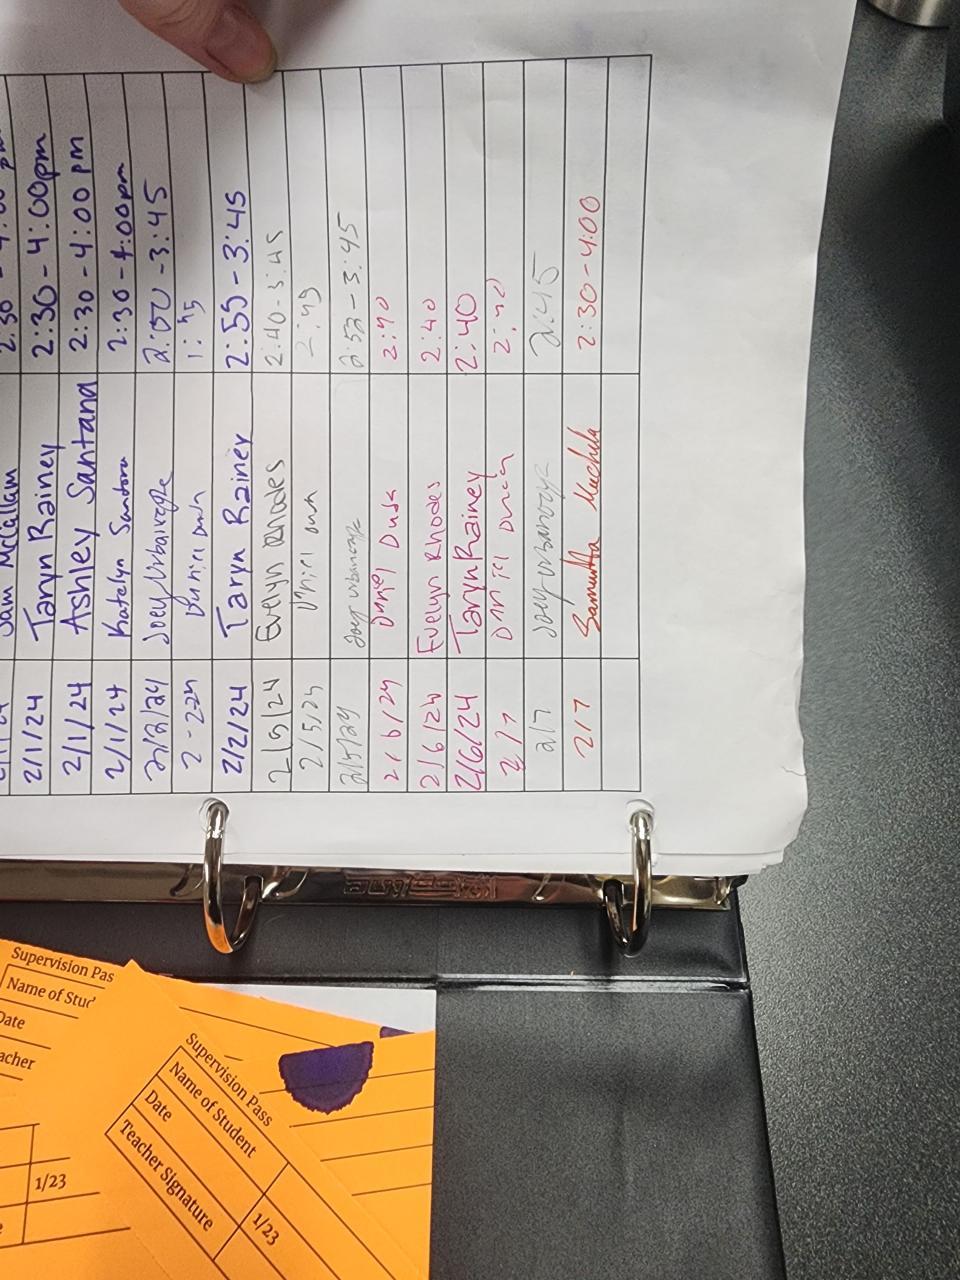 2/1/24 Sam McCallam 2:30 - 4:00 pm
2/1/24 Taryn Rainey 2:30 - 4:00pm
2/1/24 Ashley Santana 2:30 - 4:00 PM
2/1/24 Katelyn 2:30 - 4:00pm
2/2/24 Joey 2:00 - 3:45
2-2-24 1:45
2/2/24 Taryn Rainey 2:55 - 3:45
2/5/24 Evelyn Rhodes 2:40 - 3:45
2/5/24 2:45
2/5/24 Joey 2:52 - 3:45
2/6/24 Daniel 2:40
2/6/24 Evelyn Rhodes 2:40
2/6/24 Taryn Rainey 2:40
2/7 2:40
2/7 Joey 2:45
2/7 Samantha 2:30-4:00
Supervision Pas
Name of Stud
Date
acher
1/23
Supervision Pass
Name of Student
Date
Teacher Signature
1/23